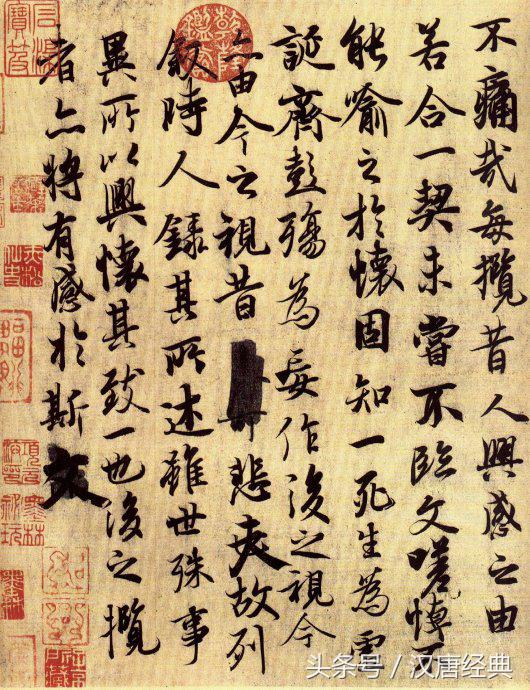 不痛哉每攬昔人興感之由
若合一契未嘗不臨文嗟悼不
能喻之於懷固知一死生為虛
誕齊彭殤為妄作後之視今
亦由今之視昔悲夫故列
敘時人錄其所述雖世殊事
異所以興懷其致一也後之攬
者亦將有感於斯文
头条号 / 汉唐经典